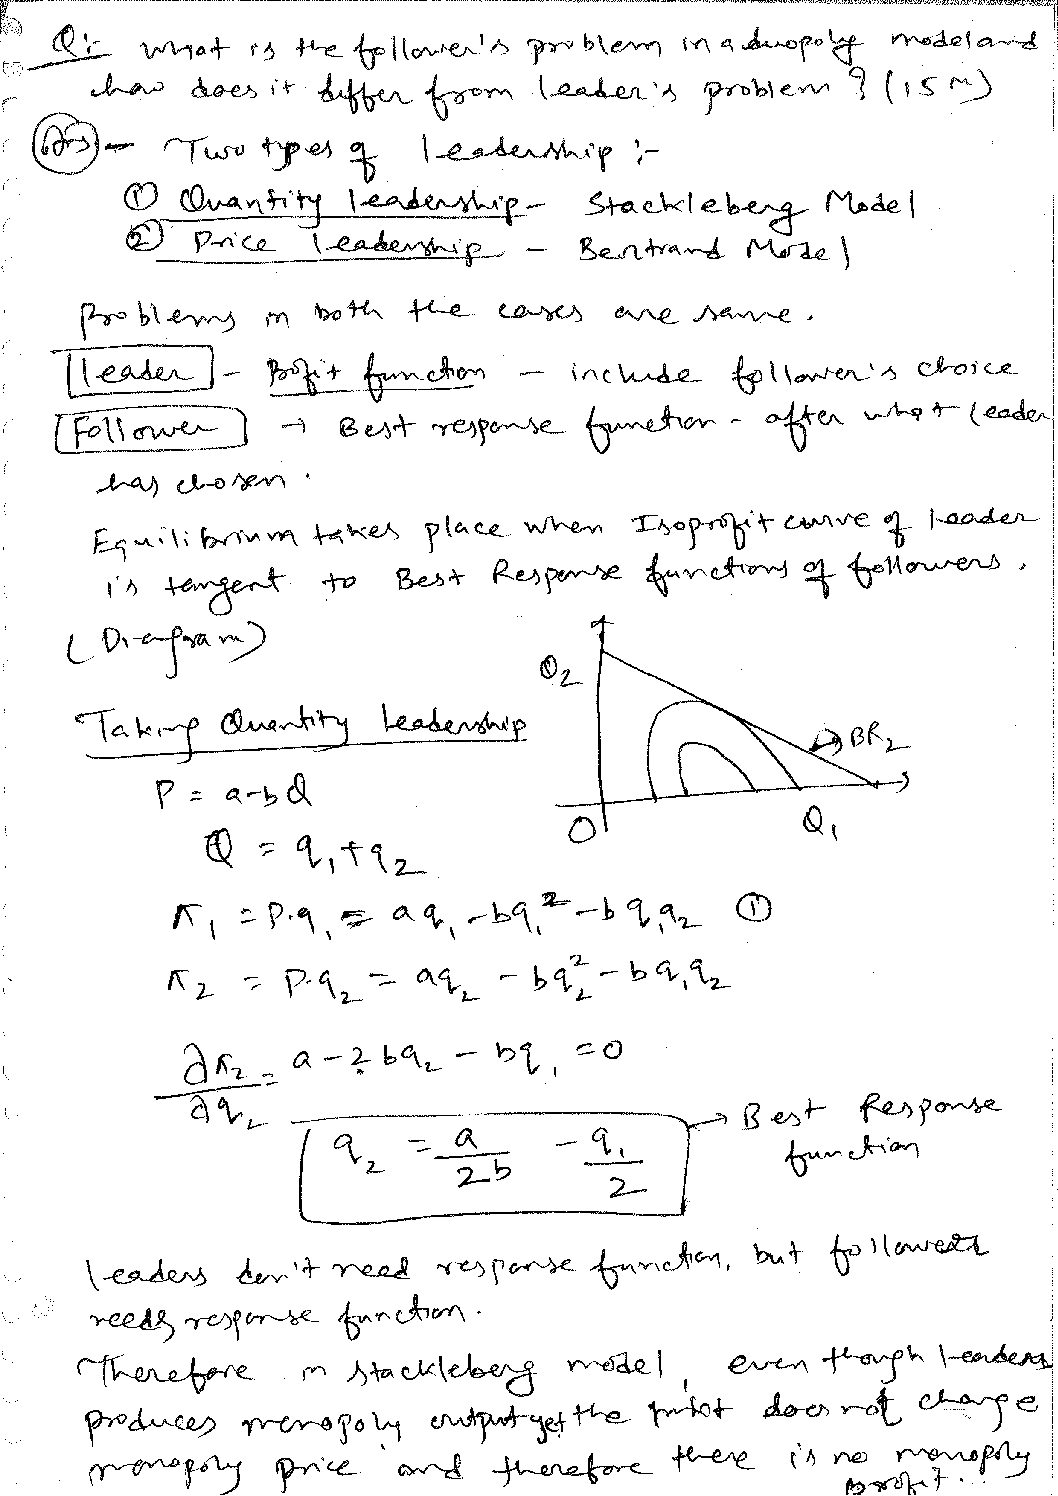 Q:- What is the follower's problem in a duopoly model and
how does it differ from leader's problem? (15 M)
Ans - Two types of leadership :-
① Quantity leadership - Stackleberg Model
② Price leadership - Bertrand Model
Problems in both the cases are same.
Leader - Profit function - include follower's choice
Follower → Best response function - after what leader
has chosen.
Equilibrium takes place when Isoprofit curve of leader
is tangent to Best Response functions of followers.
(Diagram)
Q2
BR2
O
Q1
Taking Quantity Leadership
P = a-bQ
Q = q1+q2
π1 = P.q1 = aq1 - bq1² - bq1q2 ①
π2 = P.q2 = aq2 - bq2² - bq1q2
∂π2/∂q2 = a - 2bq2 - bq1 = 0
q2 = a/2b - q1/2 → Best Response
function
Leaders don't need response function, but followers
needs response function.
Therefore in stackleberg model, even though leaders
produces monopoly output yet the does not change
monopoly price and therefore there is no monopoly
profit...